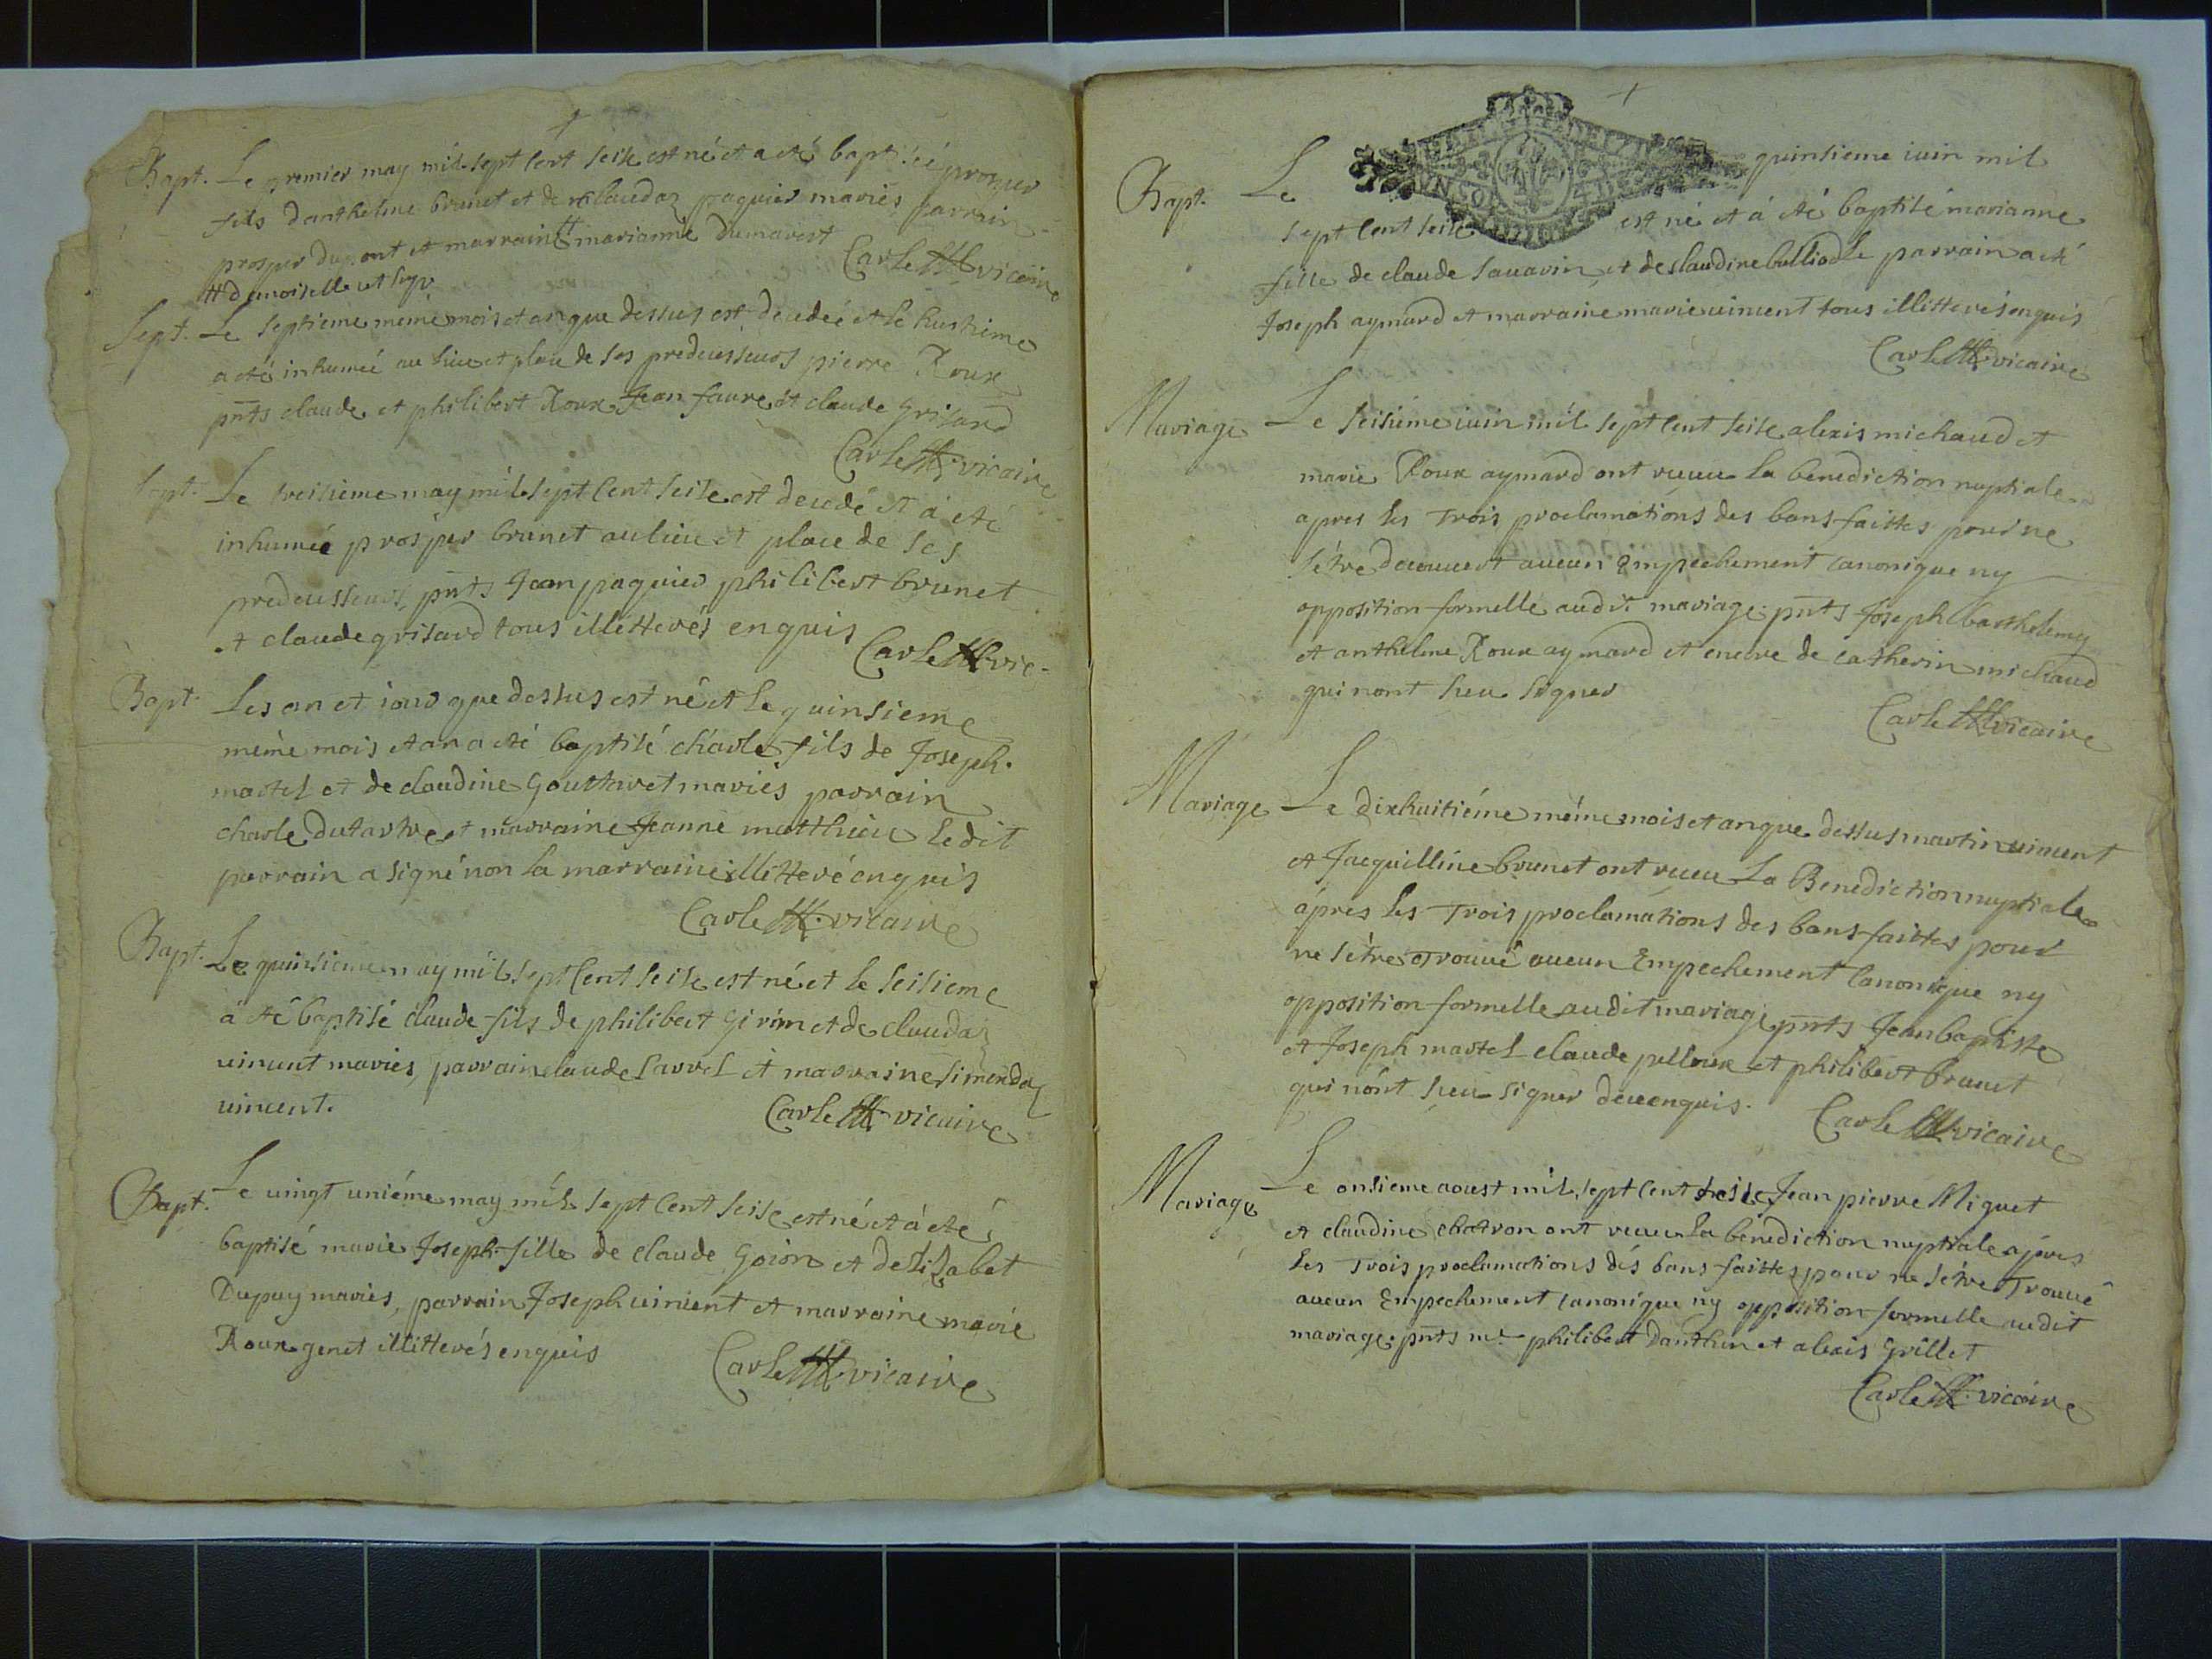 Bapt. Le premier may mil sept cent seise est né et a eté baptisé prosper
fils danthelme brunet et de claudaz paquier mariés parrain
prosper dupont et marraine # marianne Dumarest
# demoiselle
Carle vicaire
Sept. Le septieme meme mois et an que dessus est decedeé et le huitieme
a eté inhumeé au lieu et place de ses predecesseurs pierre Roux
pnts claude et philibert Roux Jean faure et claude Grisard
Carle vicaire
Sept. Le treisieme may mil sept cent seise est decedé et a eté
inhumeé prosper brunet au lieu et place de ses
predecesseurs, pnts Jean paquier philibert brunet
et claude grisard tous illitterés enquis
Carle vic.
Bapt. Les an et iour que dessus est né et le quinsieme
meme mois et an a eté baptisé charle fils de Joseph
martel et de claudine Gouttaret mariés parrain
charle dutartre et marraine Jeanne matthieu le dit
parrain a signé non la marraine illitteré enquis
Carle vicaire
Bapt. Le quinsieme may mil sept cent seise est né et le seisieme
a eté baptisé claude fils de philibert Girin et de claudaz
uincent mariés, parrain claude carrel et marraine simondaz
uincent.
Carle vicaire
Bapt. Le uingt uniéme may mil sept cent seise est né et a eté
baptisé marie Joseph fille de claude Goion et delizabet
Dupuy mariés, parrain Joseph uincent et marraine marie
Roux genet illitterés enquis
Carle vicaire
Bapt. Le quinsieme iuin mil
sept cent seise est né et á eté baptisé marianne
fille de claude sauarin et de claudine bulliod le parrain a eté
Joseph aymard et marraine marie uincent tous illitterés enquis
Carle vicaire
Mariage Le seisiéme iuin mil sept cent seise alexis michaud et
marie Roux aymard ont receu la benediction nuptiale
apres les Trois proclamations des bans faittes pour ne
sétre decouuert aucun Empechement canonique ny
opposition formelle audit mariage. pnts Joseph barthelemy
et anthelme Roux aymard et encore de catherin michaud
qui nont sceu signer
Carle vicaire
Mariage Le dixhuitiéme méme mois et an que dessus martin uincent
et Jacquilline brunet ont receu La Benediction nuptiale
ápres les Trois proclamations des bans faittes pour
ne sétre Trouué aucun Empechement canonique ny
opposition formelle audit mariage pnts Jean baptiste
et Joseph martel claude pelloux et philibert brunet
qui nont sceu signer de ce enquis.
Carle vicaire
Mariage Le onsieme aoust mil sept cent seise Jean pierre Miguet
et claudine chatron ont receu la benediction nuptiale apres
les Trois proclamations des bans faittes pour ne sétre Trouué
aucun Empechement canonique ny opposition formelle audit
mariage. pnts me philibert Danthin et alexis Grillet
Carle vicaire